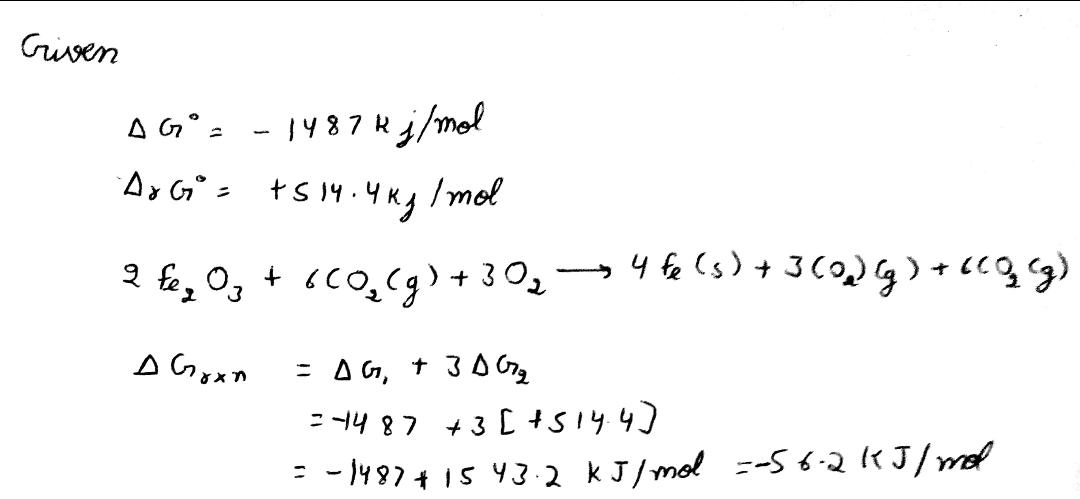 Given
ΔG° = - 1487 kj/mol
ΔrG° = +514.4 Kj /mol
2 fe₂O₃ + 6CO₂(g) + 3O₂ → 4 fe (s) + 3(O₂)(g) + 6CO₂(g)
ΔGrxn = ΔG₁ + 3ΔG₂
= -1487 + 3[+514.4]
= -1487 + 1543.2 kJ/mol = -56.2 KJ/mol